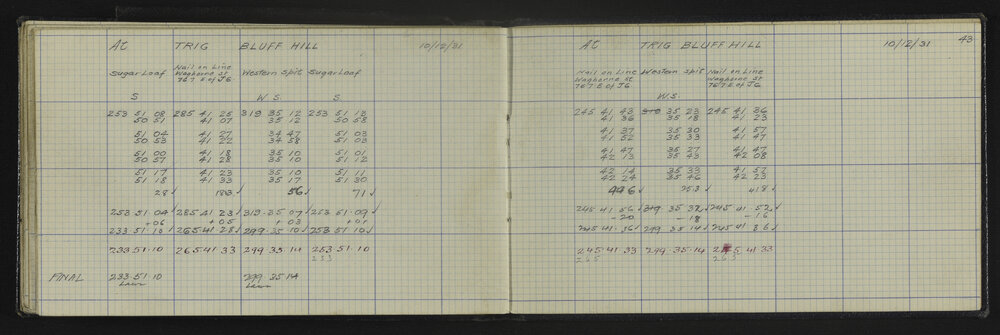 At TRIG BLUFF HILL 10/12/31
Sugar Loaf Nail on Line Waghorne St 767 E of J.G. Western Spit Sugar Loaf
S W.S. S
253 51 08 285 41 25 319 35 12 253 51 13
50 51 41 07 35 12 50 58
51 04 41 27 34 47 51 03
50 53 41 22 34 58 51 03
51 00 41 18 35 10 51 01
50 57 41 28 35 10 51 12
51 17 41 23 35 10 51 11
51 18 41 33 35 17 51 30
28 183 56 71
253 51 04 285 41 23 319 35 07 253 51 09
+06 +05 +03 +01
233 51 10 265 41 28 299 35 10 253 51 10
233 51 10 265 41 33 299 35 14 253 51 10
233
FINAL 233 51 10 299 35 14
Laws Laws
At TRIG BLUFF HILL 10/12/31 43
Nail on Line Waghorne St 767 E of J.G. Western Spit Nail on Line Waghorne St 767 E of J.G.
W.S.
245 41 43 319 35 23 245 41 36
41 36 35 18 41 23
41 37 35 30 41 57
41 52 35 33 41 47
41 47 35 27 41 47
42 13 35 43 42 08
42 14 35 33 41 57
42 24 35 46 42 23
446 253 418
245 41 56 319 35 32 245 41 52
-20 -18 -16
245 41 36 299 35 14 245 41 36
245 41 33 299 35 14 245 41 33
265 265